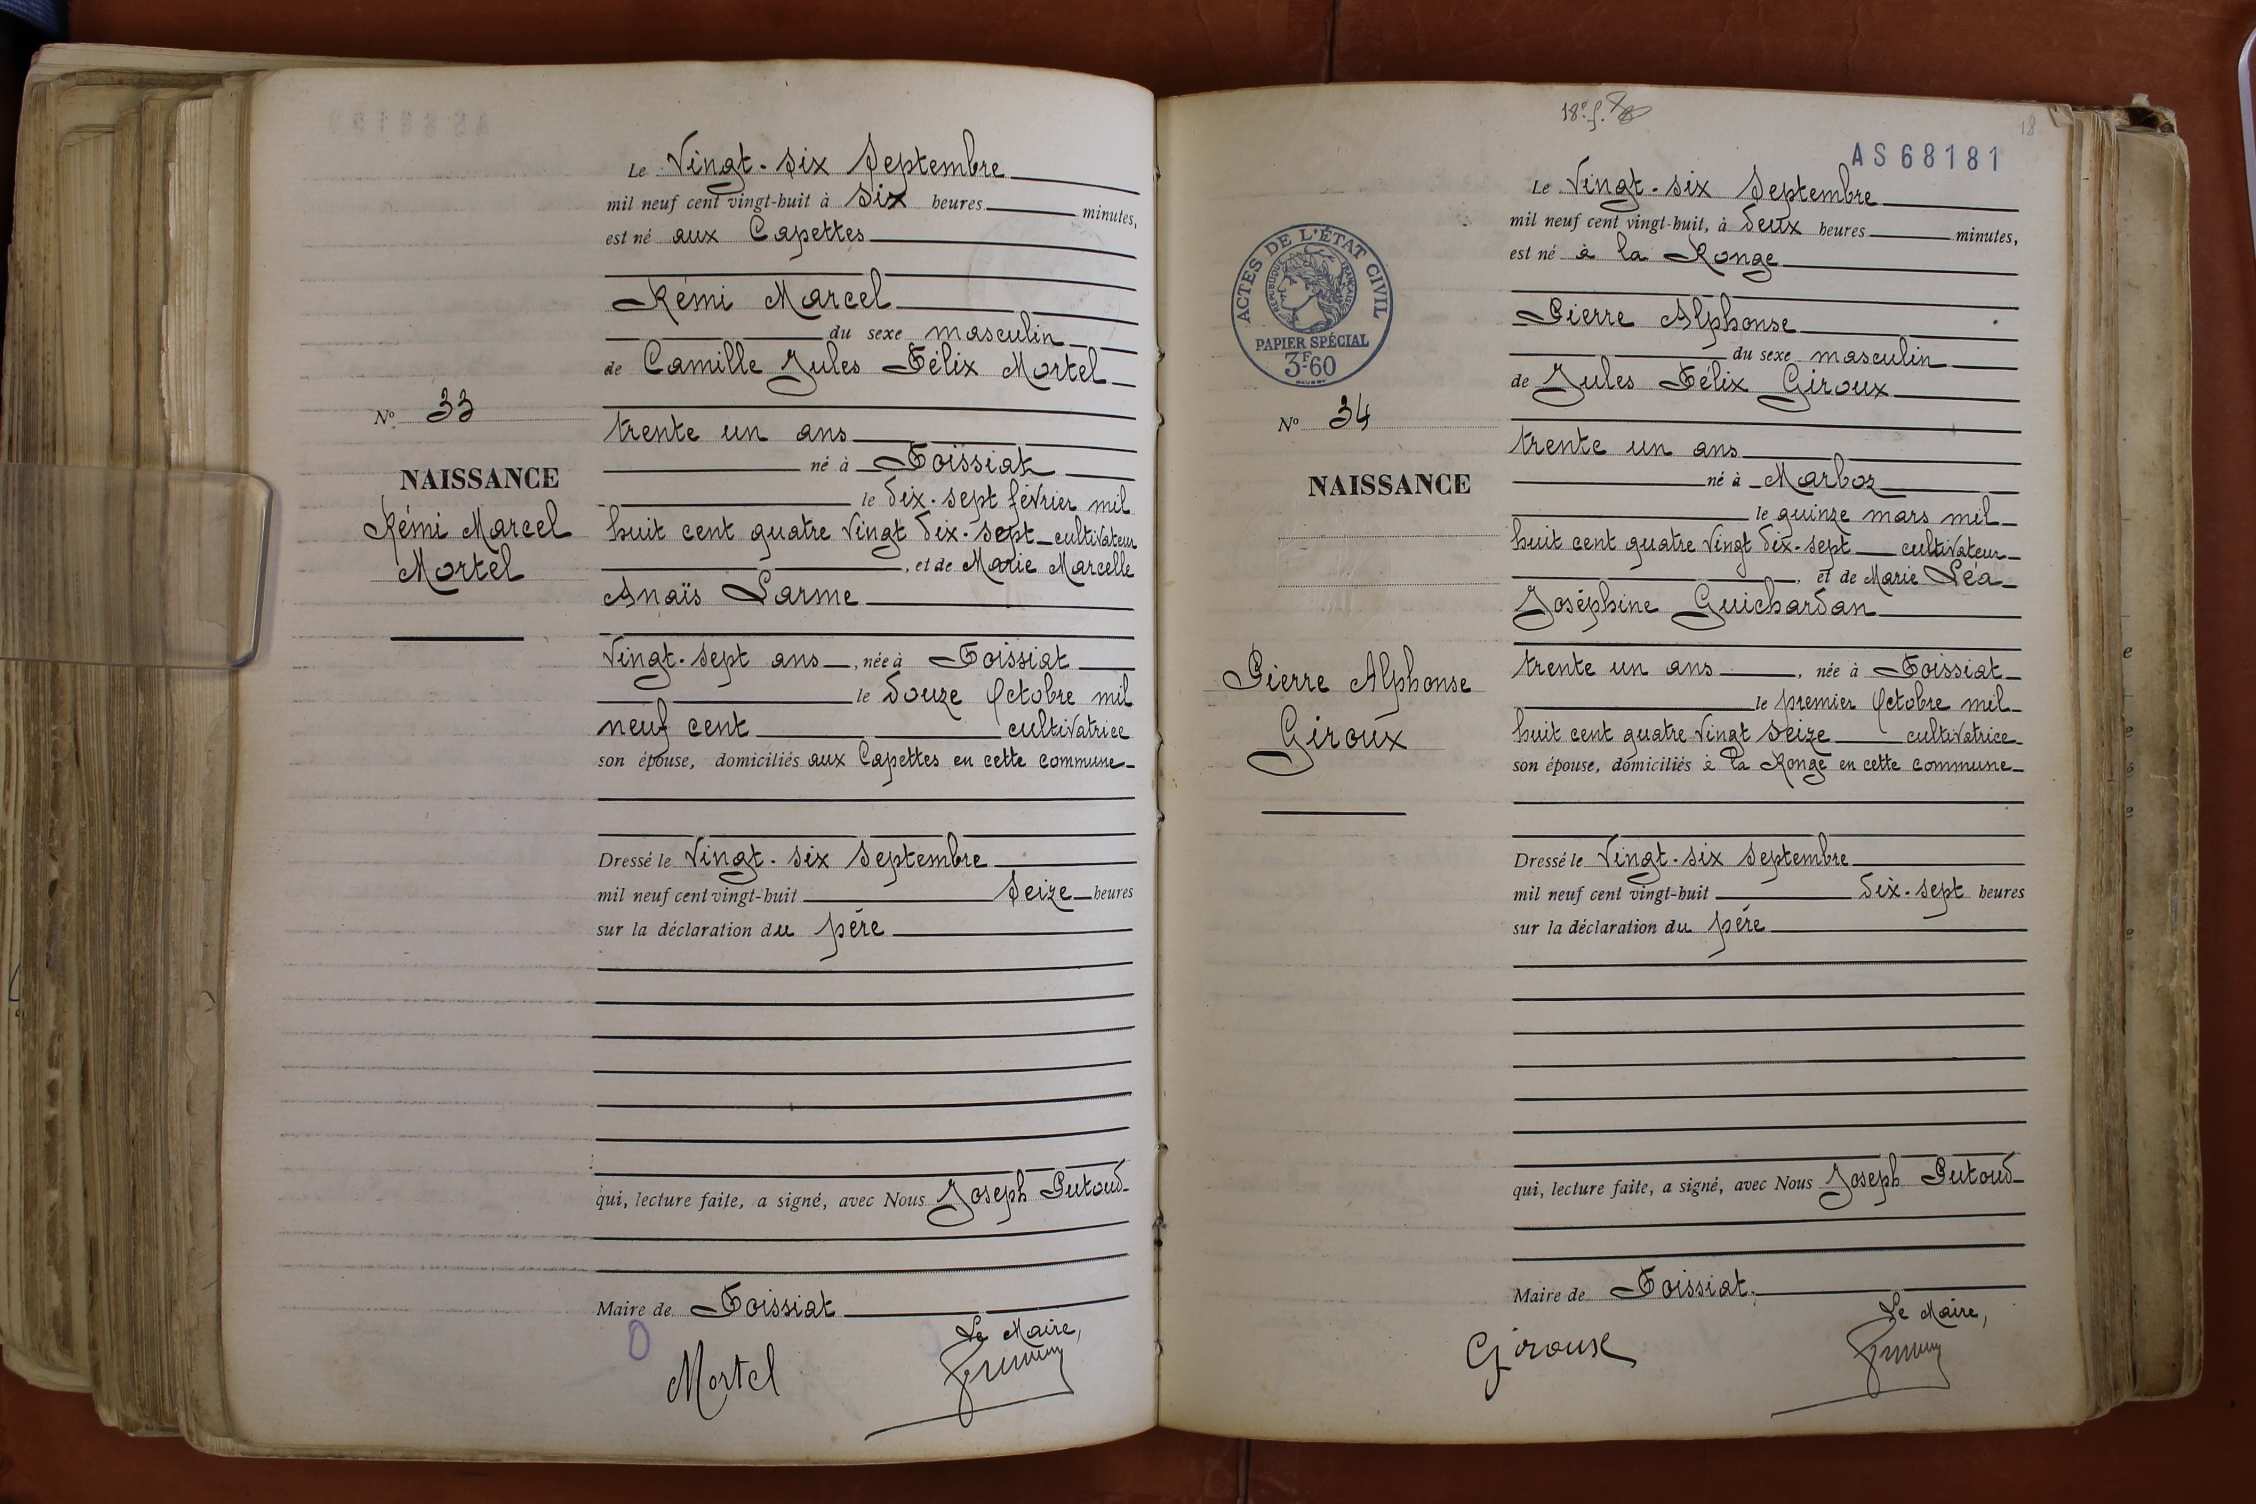 Le Vingt-six Septembre
mil neuf cent vingt-huit à six heures minutes,
est né aux Capettes
Rémi Marcel
du sexe masculin
de Camille Jules Félix Mortel
N° 33
trente un ans
né à Foissiat
NAISSANCE
le dix-sept février mil
Rémi Marcel
Mortel
huit cent quatre vingt dix-sept cultivateur
, et de Marie Marcelle
Anaïs Larme
vingt-sept ans , née à Foissiat
le douze Octobre mil
neuf cent cultivatrice
son épouse, domiciliés aux Capettes en cette commune
Dressé le Vingt-six Septembre
mil neuf cent vingt-huit Seize heures
sur la déclaration du père
qui, lecture faite, a signé, avec Nous Joseph Putoud
Maire de Foissiat
Le Maire,
Mortel
18e f.
18
AS 68181
Le Vingt-six Septembre
mil neuf cent vingt-huit, à deux heures minutes,
est né à la Ronge
ACTES DE L'ÉTAT CIVIL
RÉPUBLIQUE FRANÇAISE
PAPIER SPÉCIAL
3F-60
Pierre Alphonse
du sexe masculin
de Jules Félix Giroux
N° 34
trente un ans
né à Marboz
NAISSANCE
le quinze mars mil
huit cent quatre vingt dix-sept cultivateur
, et de Marie Léa
Joséphine Guichardan
Pierre Alphonse
Giroux
trente un ans , née à Foissiat
le premier Octobre mil
huit cent quatre vingt seize cultivatrice
son épouse, domiciliés à la Ronge en cette commune
Dressé le Vingt-six Septembre
mil neuf cent vingt-huit dix-sept heures
sur la déclaration du père
qui, lecture faite, a signé, avec Nous Joseph Putoud
Maire de Foissiat.
Le Maire,
Giroux